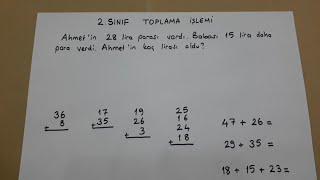 2. SINIF TOPLAMA İŞLEMİ
Ahmet'in 28 lira parası vardı. Babası 15 lira daha
para verdi. Ahmet'in kaç lirası oldu?
36
8
+
17
+35
19
26
+ 3
25
16
24
+ 18
47 + 26 =
29 + 35 =
18 + 15 + 23 =